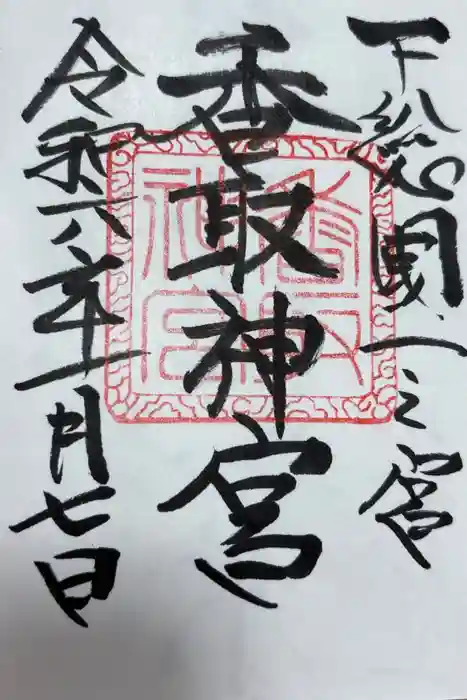 下総國一之宮
香取神宮
令和六年一月七日
香取
神宮